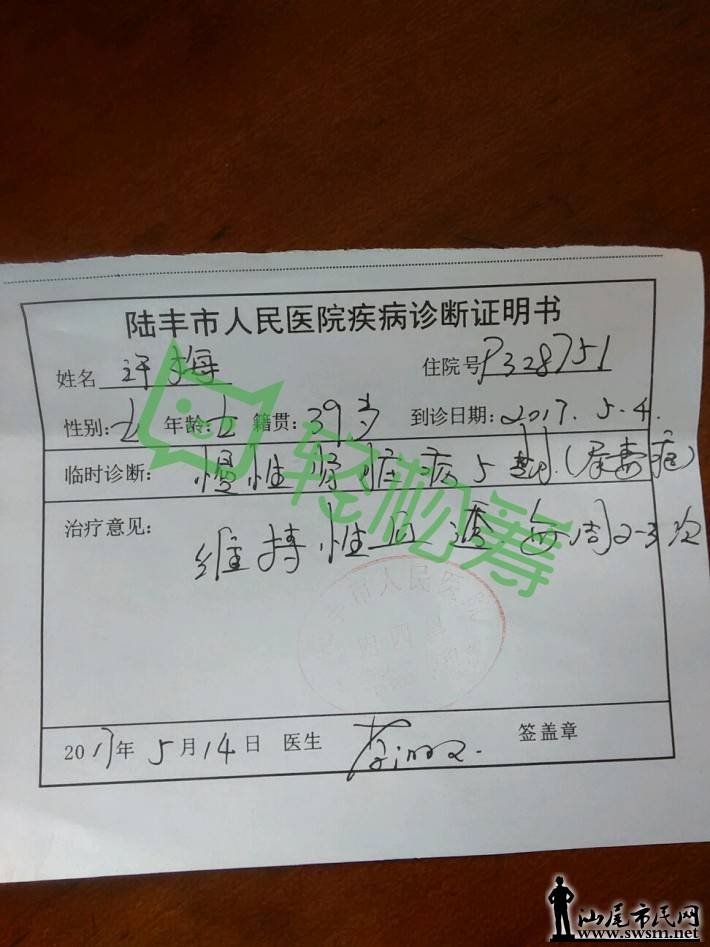 陆丰市人民医院疾病诊断证明书
姓名 许梅 住院号 P328751
性别: 女 年龄: 籍贯: 39岁 到诊日期: 2017.5.4.
临时诊断: 慢性肾脏病5期(尿毒症)
治疗意见:
维持性血透 每周2-3次
轻松筹
市人民医院
2017年5月14日 医生 签盖章
汕尾市民网
www.swsm.net